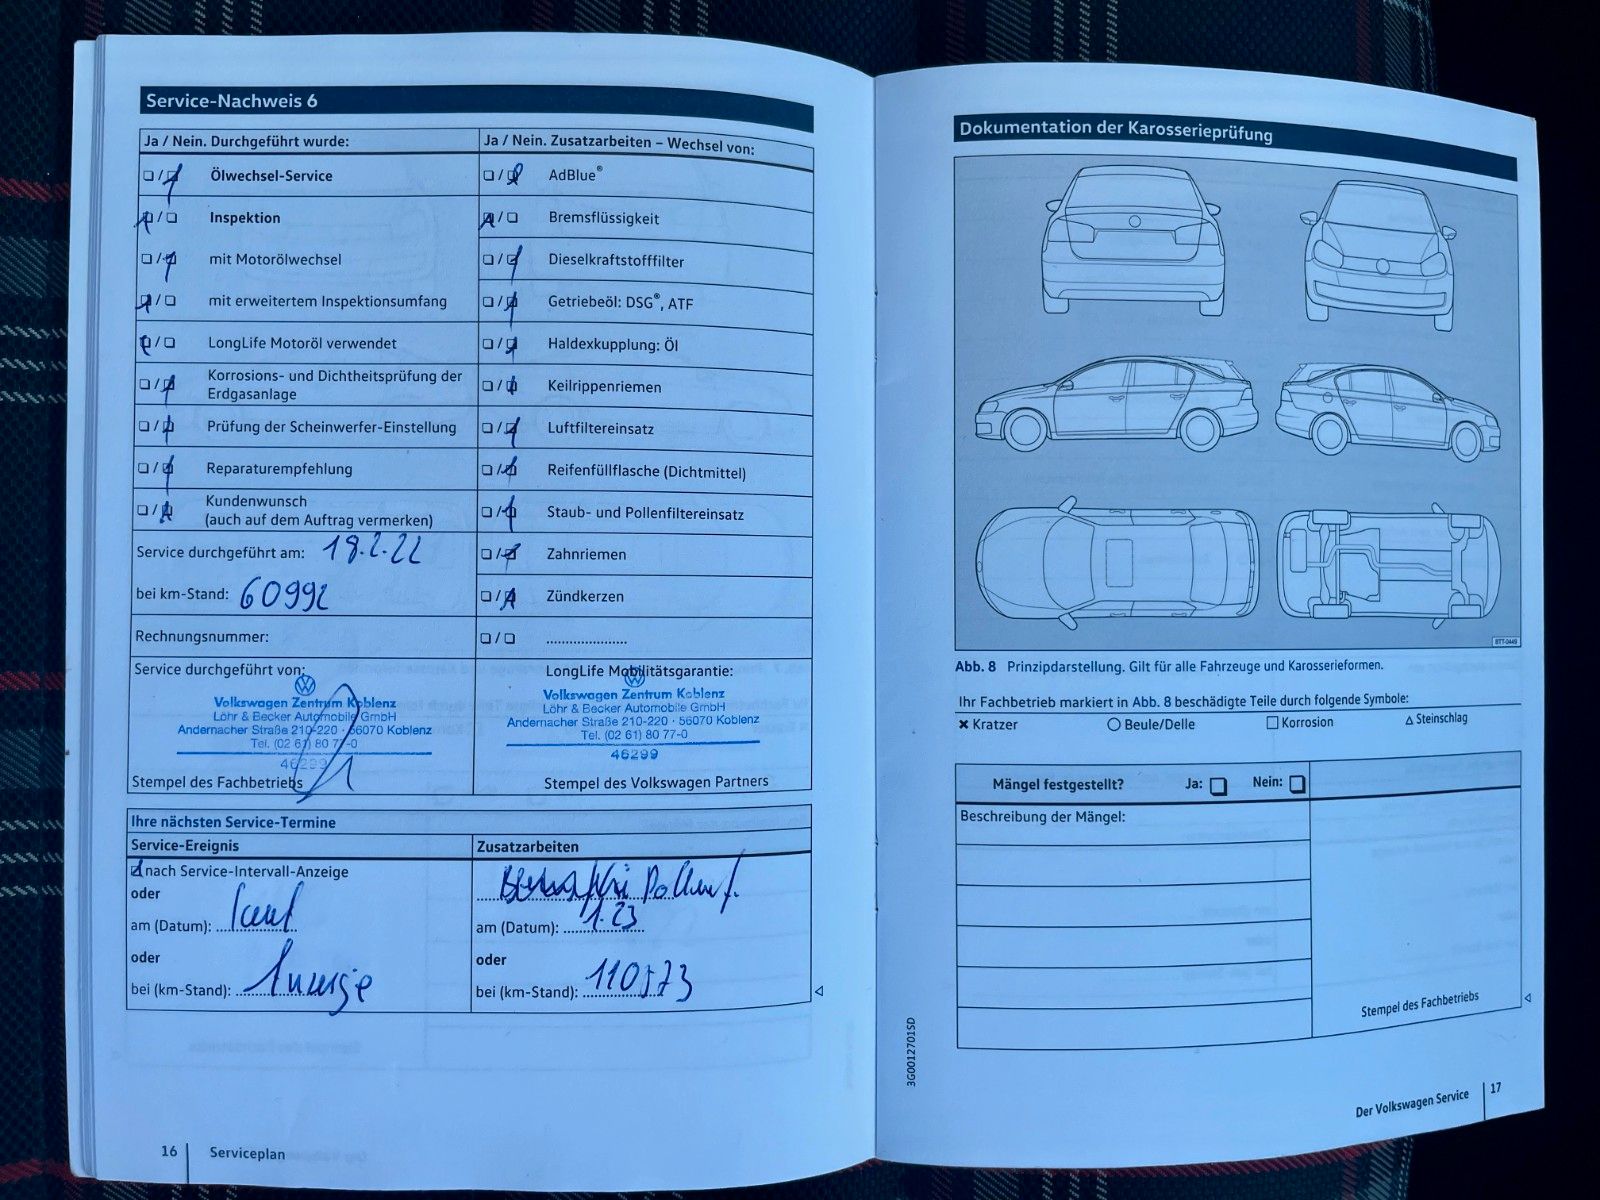 Service-Nachweis 6
Ja / Nein. Durchgeführt wurde:
Ölwechsel-Service
Inspektion
mit Motorölwechsel
mit erweitertem Inspektionsumfang
LongLife Motoröl verwendet
Korrosions- und Dichtheitsprüfung der
Erdgasanlage
Prüfung der Scheinwerfer-Einstellung
Reparaturempfehlung
Kundenwunsch
(auch auf dem Auftrag vermerken)
Service durchgeführt am: 18.2.22
bei km-Stand: 60992
Rechnungsnummer:
Ja / Nein. Zusatzarbeiten – Wechsel von:
AdBlue®
Bremsflüssigkeit
Dieselkraftstofffilter
Getriebeöl: DSG®, ATF
Haldexkupplung: Öl
Keilrippenriemen
Luftfiltereinsatz
Reifenfüllflasche (Dichtmittel)
Staub- und Pollenfiltereinsatz
Zahnriemen
Zündkerzen
Service durchgeführt von:
Volkswagen Zentrum Koblenz
Löhr & Becker Automobile GmbH
Andernacher Straße 210-220 · 56070 Koblenz
Tel. (02 61) 80 77-0
46299
Stempel des Fachbetriebs
LongLife Mobilitätsgarantie:
Volkswagen Zentrum Koblenz
Löhr & Becker Automobile GmbH
Andernacher Straße 210-220 · 56070 Koblenz
Tel. (02 61) 80 77-0
46299
Stempel des Volkswagen Partners
Ihre nächsten Service-Termine
Service-Ereignis
nach Service-Intervall-Anzeige
oder
am (Datum): laut
oder
bei (km-Stand): Anzeige
Zusatzarbeiten
Pollenf.
am (Datum): 1.23
oder
bei (km-Stand): 110573
16 Serviceplan
Dokumentation der Karosserieprüfung
BTT-0449
Abb. 8 Prinzipdarstellung. Gilt für alle Fahrzeuge und Karosserieformen.
Ihr Fachbetrieb markiert in Abb. 8 beschädigte Teile durch folgende Symbole:
Kratzer Beule/Delle Korrosion Steinschlag
Mängel festgestellt? Ja: Nein:
Beschreibung der Mängel:
Stempel des Fachbetriebs
3G0012701SD
Der Volkswagen Service 17